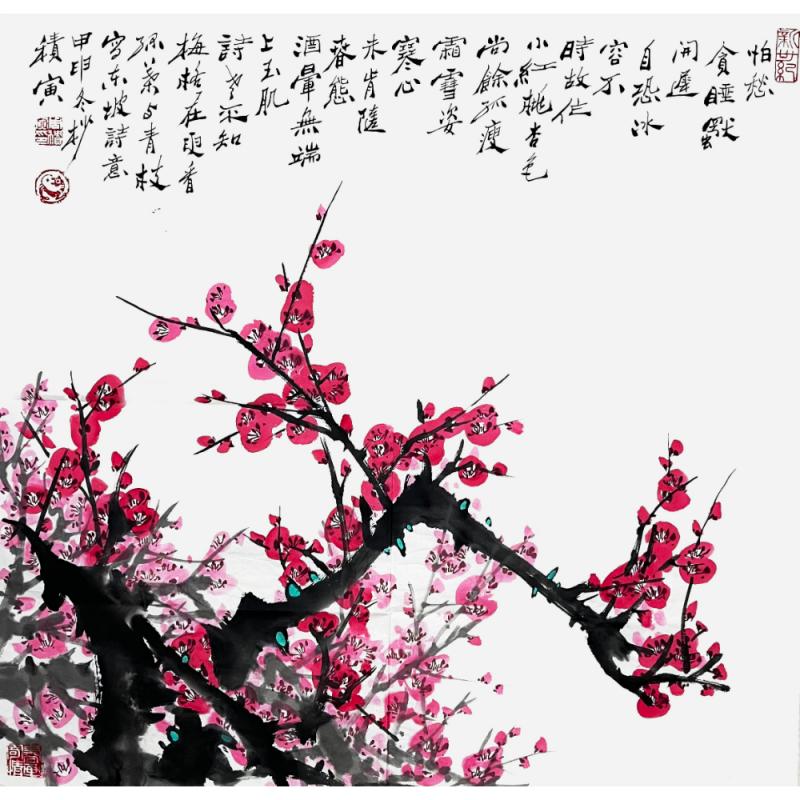 新世纪
怕愁
貪睡獨
開遲
自恐冰
容不
時故作
小紅桃杏色
尚餘孤瘦
霜雪姿
寒心
未肯隨
春態
酒暈無端
上玉肌
詩老不知
梅格在更看
綠葉与青枝
写东坡詩意
甲申冬杪
積寅